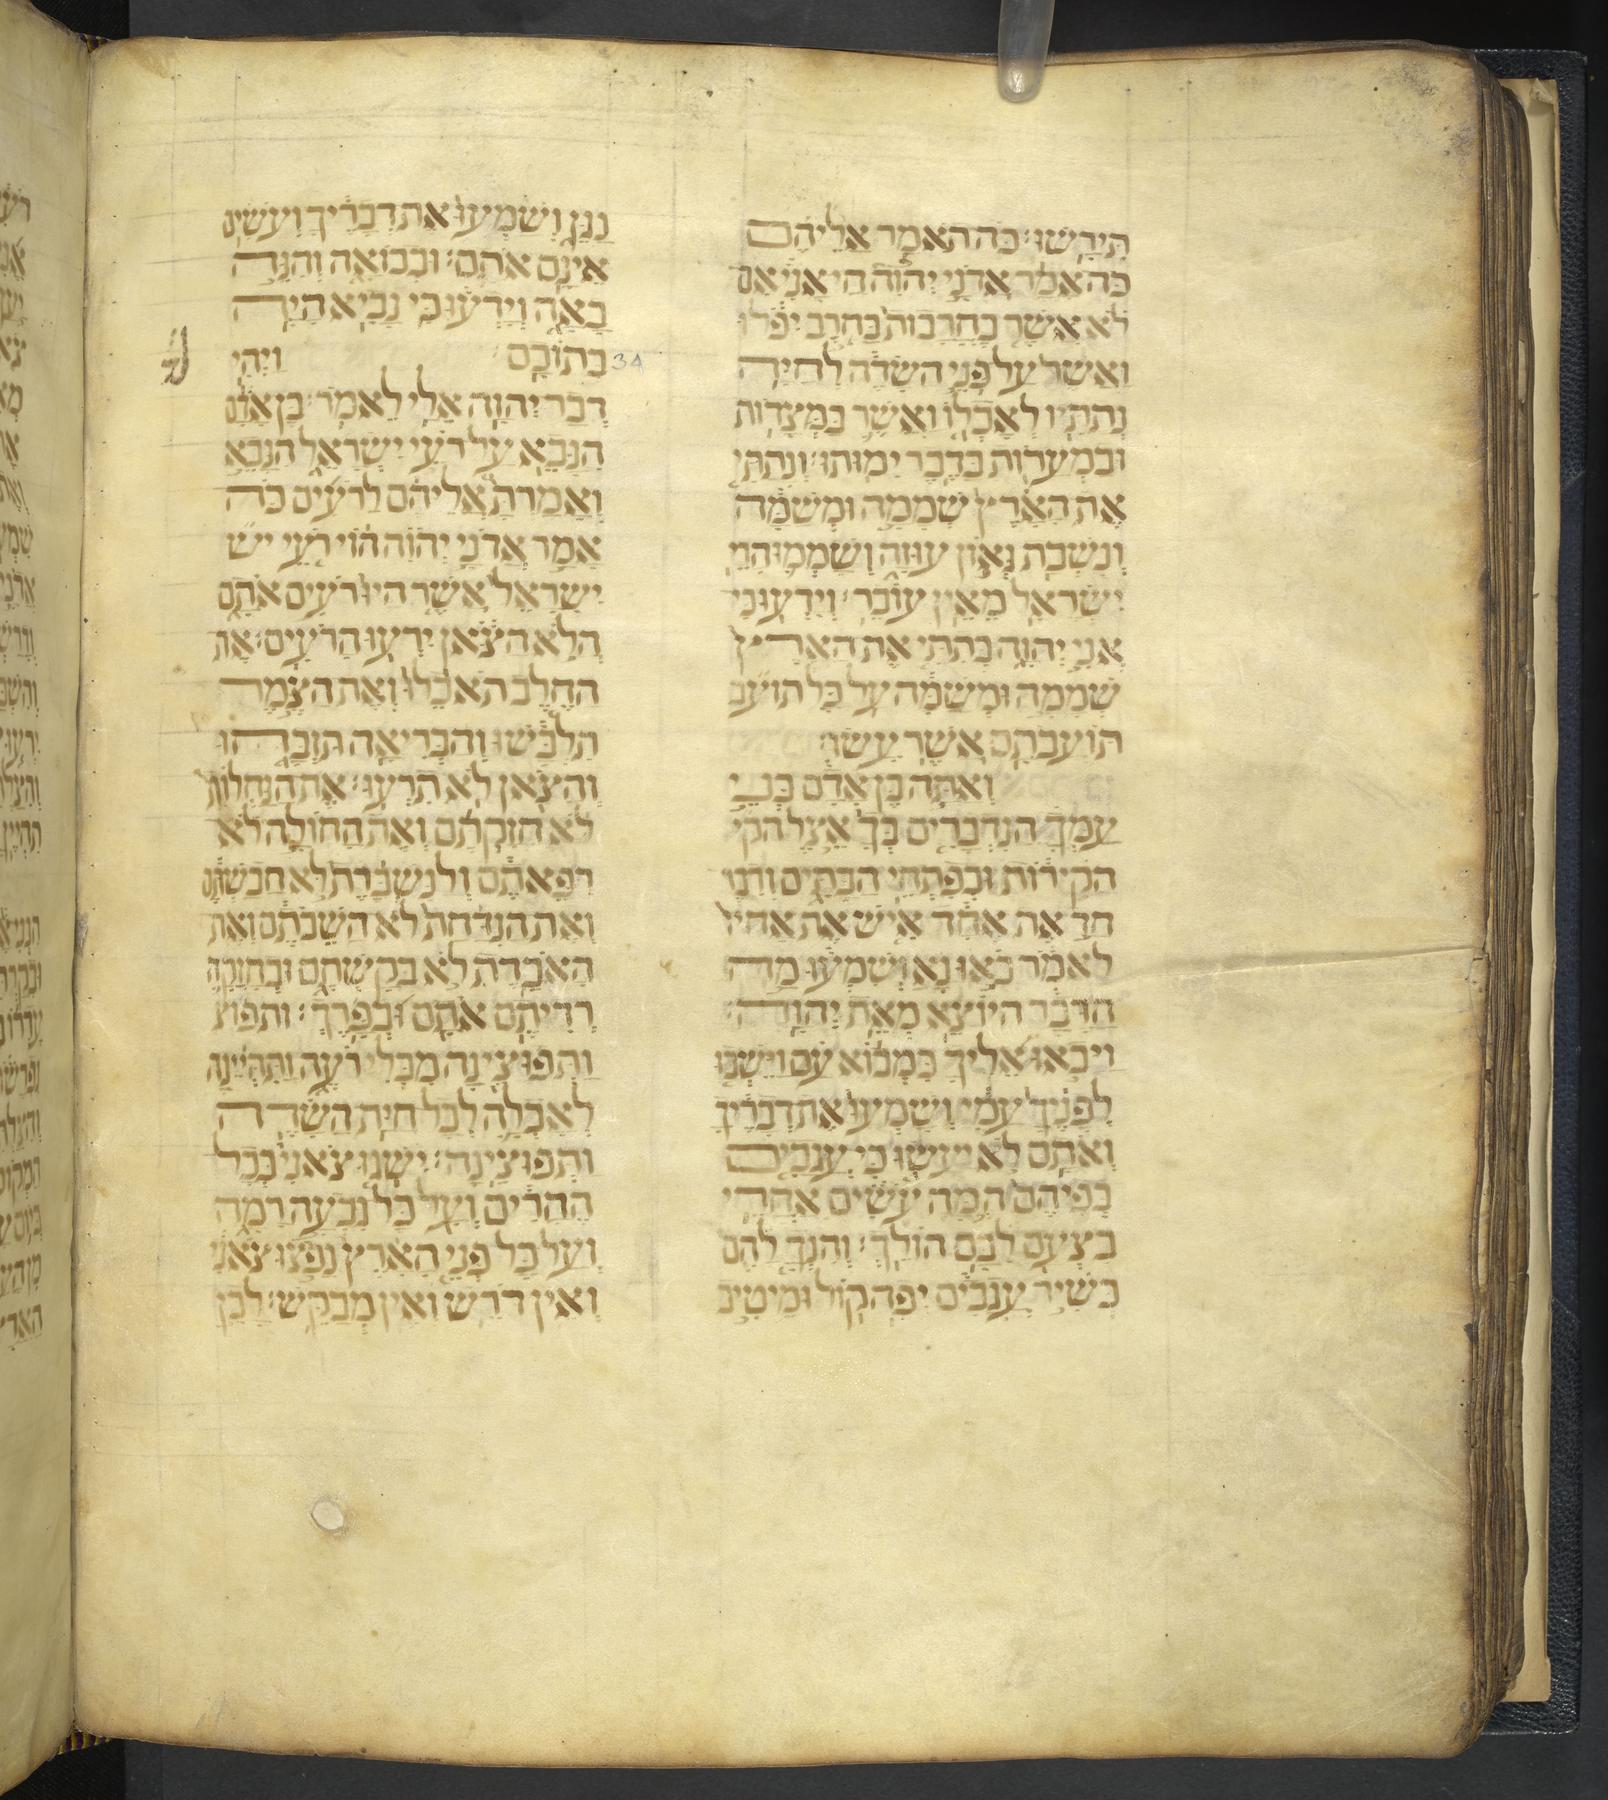 תִּירָשׁוּ׃ כֹּה תֹאמַר אֲלֵיהֶם
כֹּה אָמַר אֲדֹנָי יְהוִֹה חַי אָנִי אִם
לֹא אֲשֶׁר בֶּחֳרָבוֹת בַּחֶרֶב יִפֹּלוּ
וַאֲשֶׁר עַל פְּנֵי הַשָּׂדֶה לַחַיָּה
נְתַתִּיו לְאָכְלוֹ וַאֲשֶׁר בַּמְּצָדוֹת
וּבַמְּעָרוֹת בַּדֶּבֶר יָמוּתוּ׃ וְנָתַתִּי
אֶת הָאָרֶץ שְׁמָמָה וּמְשַׁמָּה
וְנִשְׁבַּת גְּאוֹן עֻזָּהּ וְשָׁמְמוּ הָרֵי
יִשְׂרָאֵל מֵאֵין עוֹבֵר׃ וְיָדְעוּ כִּי
אֲנִי יְהוָה בְּתִתִּי אֶת הָאָרֶץ
שְׁמָמָה וּמְשַׁמָּה עַל כָּל תועב
תּוֹעֲבֹתָם אֲשֶׁר עָשׂוּ׃
וְאַתָּה בֶן אָדָם בְּנֵי
עַמְּךָ הַנִּדְבָּרִים בְּךָ אֵצֶל הקי
הַקִּירוֹת וּבְפִתְחֵי הַבָּתִּים וְדִבֶּר
חַד אֶת אַחַד אִישׁ אֶת אָחִיו
לֵאמֹר בֹּאוּ נָא וְשִׁמְעוּ מָה
הַדָּבָר הַיּוֹצֵא מֵאֵת יְהוָה׃
וְיָבֹאוּ אֵלֶיךָ כִּמְבוֹא עָם וְיֵשְׁבוּ
לְפָנֶיךָ עַמִּי וְשָׁמְעוּ אֶת דְּבָרֶיךָ
וְאוֹתָם לֹא יַעֲשׂוּ כִּי עֲגָבִים
בְּפִיהֶם הֵמָּה עֹשִׂים אַחֲרֵי
בִצְעָם לִבָּם הוֹלֵךְ׃ וְהִנְּךָ לָהֶם
כְּשִׁיר עֲגָבִים יְפֵה קוֹל וּמֵיטִיב
נַגֵּן וְשָׁמְעוּ אֶת דְּבָרֶיךָ וְעֹשִׂים
אֵינָם אֹתָם׃ וּבְבוֹאָהּ הִנֵּה
בָאָה וְיָדְעוּ כִּי נָבִיא הָיָה
בְתוֹכָם׃ 34 וַיְהִי
דְבַר יְהוָה אֵלַי לֵאמֹר׃ בֶּן אָדָם
הִנָּבֵא עַל רֹעֵי יִשְׂרָאֵל הִנָּבֵא
וְאָמַרְתָּ אֲלֵיהֶם לָרֹעִים כֹּה
אָמַר אֲדֹנָי יְהוִֹה הוֹי רֹעֵי יש
יִשְׂרָאֵל אֲשֶׁר הָיוּ רֹעִים אֹתָם
הֲלֹא הַצֹּאן יִרְעוּ הָרֹעִים׃ אֶת
הַחֵלֶב תֹּאכֵלוּ וְאֶת הַצֶּמֶר
תִּלְבָּשׁוּ וְהַבְּרִיאָה תִּזְבָּחוּ
וְהַצֹּאן לֹא תִרְעוּ׃ אֶת הַנַּחְלוֹת
לֹא חִזַּקְתֶּם וְאֶת הַחוֹלָה לֹא
רִפֵּאתֶם וְלַנִּשְׁבֶּרֶת לֹא חֲבַשְׁתֶּם
וְאֶת הַנִּדַּחַת לֹא הֲשֵׁבֹתֶם וְאֶת
הָאֹבֶדֶת לֹא בִקַּשְׁתֶּם וּבְחָזְקָה
רְדִיתֶם אֹתָם וּבְפָרֶךְ׃ ותפוצ
וַתְּפוּצֶינָה מִבְּלִי רֹעֶה וַתִּהְיֶינָה
לְאָכְלָה לְכָל חַיַּת הַשָּׂדֶה
וַתְּפוּצֶינָה׃ יִשְׁגּוּ צֹאנִי בְּכָל
הֶהָרִים וְעַל כָּל גִּבְעָה רָמָה
וְעַל כָּל פְּנֵי הָאָרֶץ נָפֹצוּ צֹאנִי
וְאֵין דּוֹרֵשׁ וְאֵין מְבַקֵּשׁ׃ לָכֵן